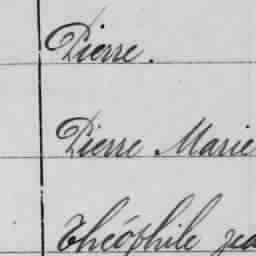 Pierre.
Pierre Marie
Théophile